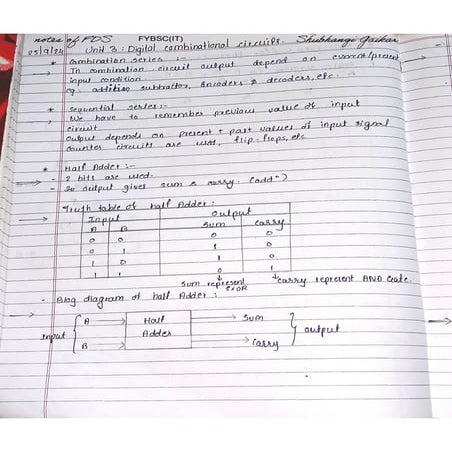 notes of PDS FYBSC(IT) Shubhangi Gaikar
25/9/24 Unit 3: Digital combinational circuits.
* Combination series :-
→ In combination circuit output depend on current/present
input condition.
eg. addition subtractor, Encoders & decoders, etc.
* Sequential series:-
→ We have to remember previous value of input
circuit
Output depends on present + past values of input signal
counter circuits are used, flip-flops, etc
* Half Adder :-
- 2 bits are used.
- So output gives sum & carry. (add")
→ Truth table of half Adder:
Input Output
A B Sum Carry
0 0 0 0
0 1 1 0
1 0 1 0
1 1 0 1
↓ ↓
Sum represent EXOR carry represent AND Gate.
- Blog diagram of half Adder :
Input { A → Half Adder → Sum } output
B → → Carry